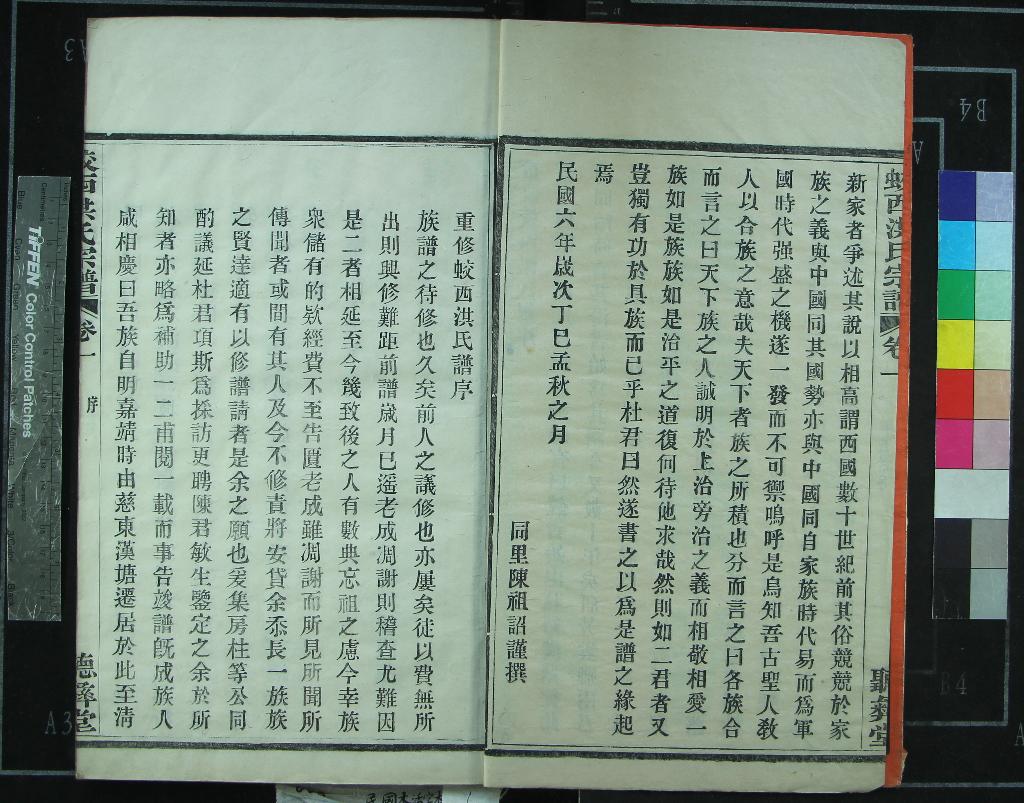 新家者爭述其說以相高謂西國數十世紀前其俗競競於家
族之義與中國同其國勢亦與中國同自家族時代易而爲軍
國時代强盛之機遂一發而不可禦嗚呼是烏知吾古聖人教
人以合族之意哉夫天下者族之所積也分而言之曰各族合
而言之曰天下族之人誠明於上治旁治之義而相敬相愛一
族如是族族如是治平之道復何待他求哉然則如二君者又
豈獨有功於具族而已乎杜君曰然遂書之以爲是譜之緣起
焉
民國六年歲次丁巳孟秋之月
同里陳祖詔謹撰
重修蛟西洪氏譜序
族譜之待修也久矣前人之議修也亦屢矣徒以費無所
出則興修難距前譜歲月已遥老成凋謝則稽查尤難因
是二者相延至今幾致後之人有數典忘祖之慮今幸族
衆儲有的欵經費不至告匱老成雖凋謝而所見所聞所
傳聞者或間有其人及今不修責將安貸余忝長一族族
之賢達適有以修譜請者是余之願也爰集房柱等公同
酌議延杜君項斯爲採訪更聘陳君敏生鑒定之余於所
知者亦略爲補助一二甫閱一載而事告竣譜旣成族人
咸相慶曰吾族自明嘉靖時由慈東漢塘遷居於此至淸
蛟西洪氏宗譜
卷一
序
德彝堂
TIFFEN Color Control Patches
A3
B4